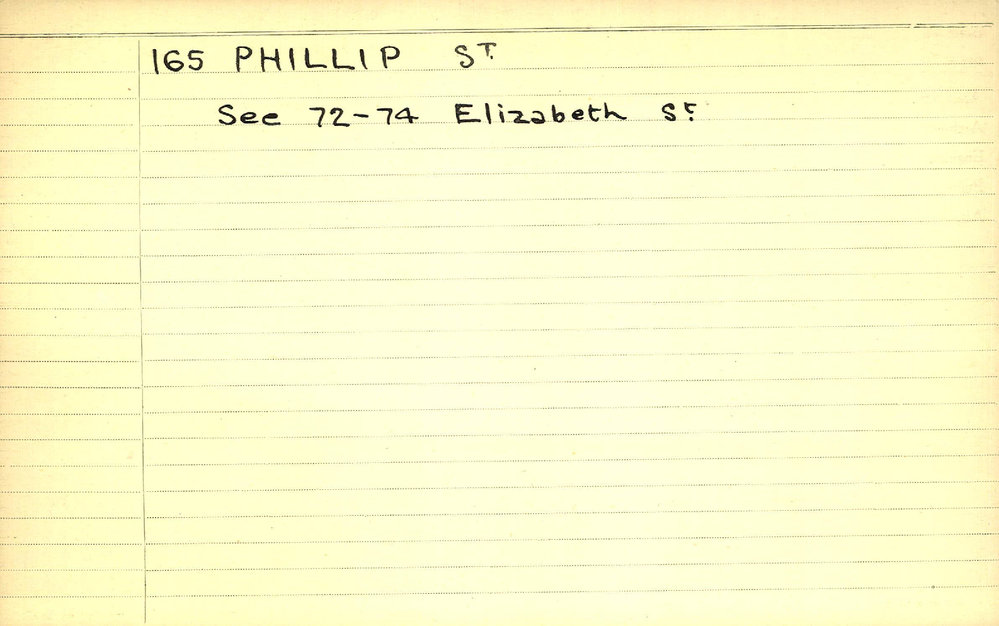 165 PHILLIP ST.
See 72-74 Elizabeth St.